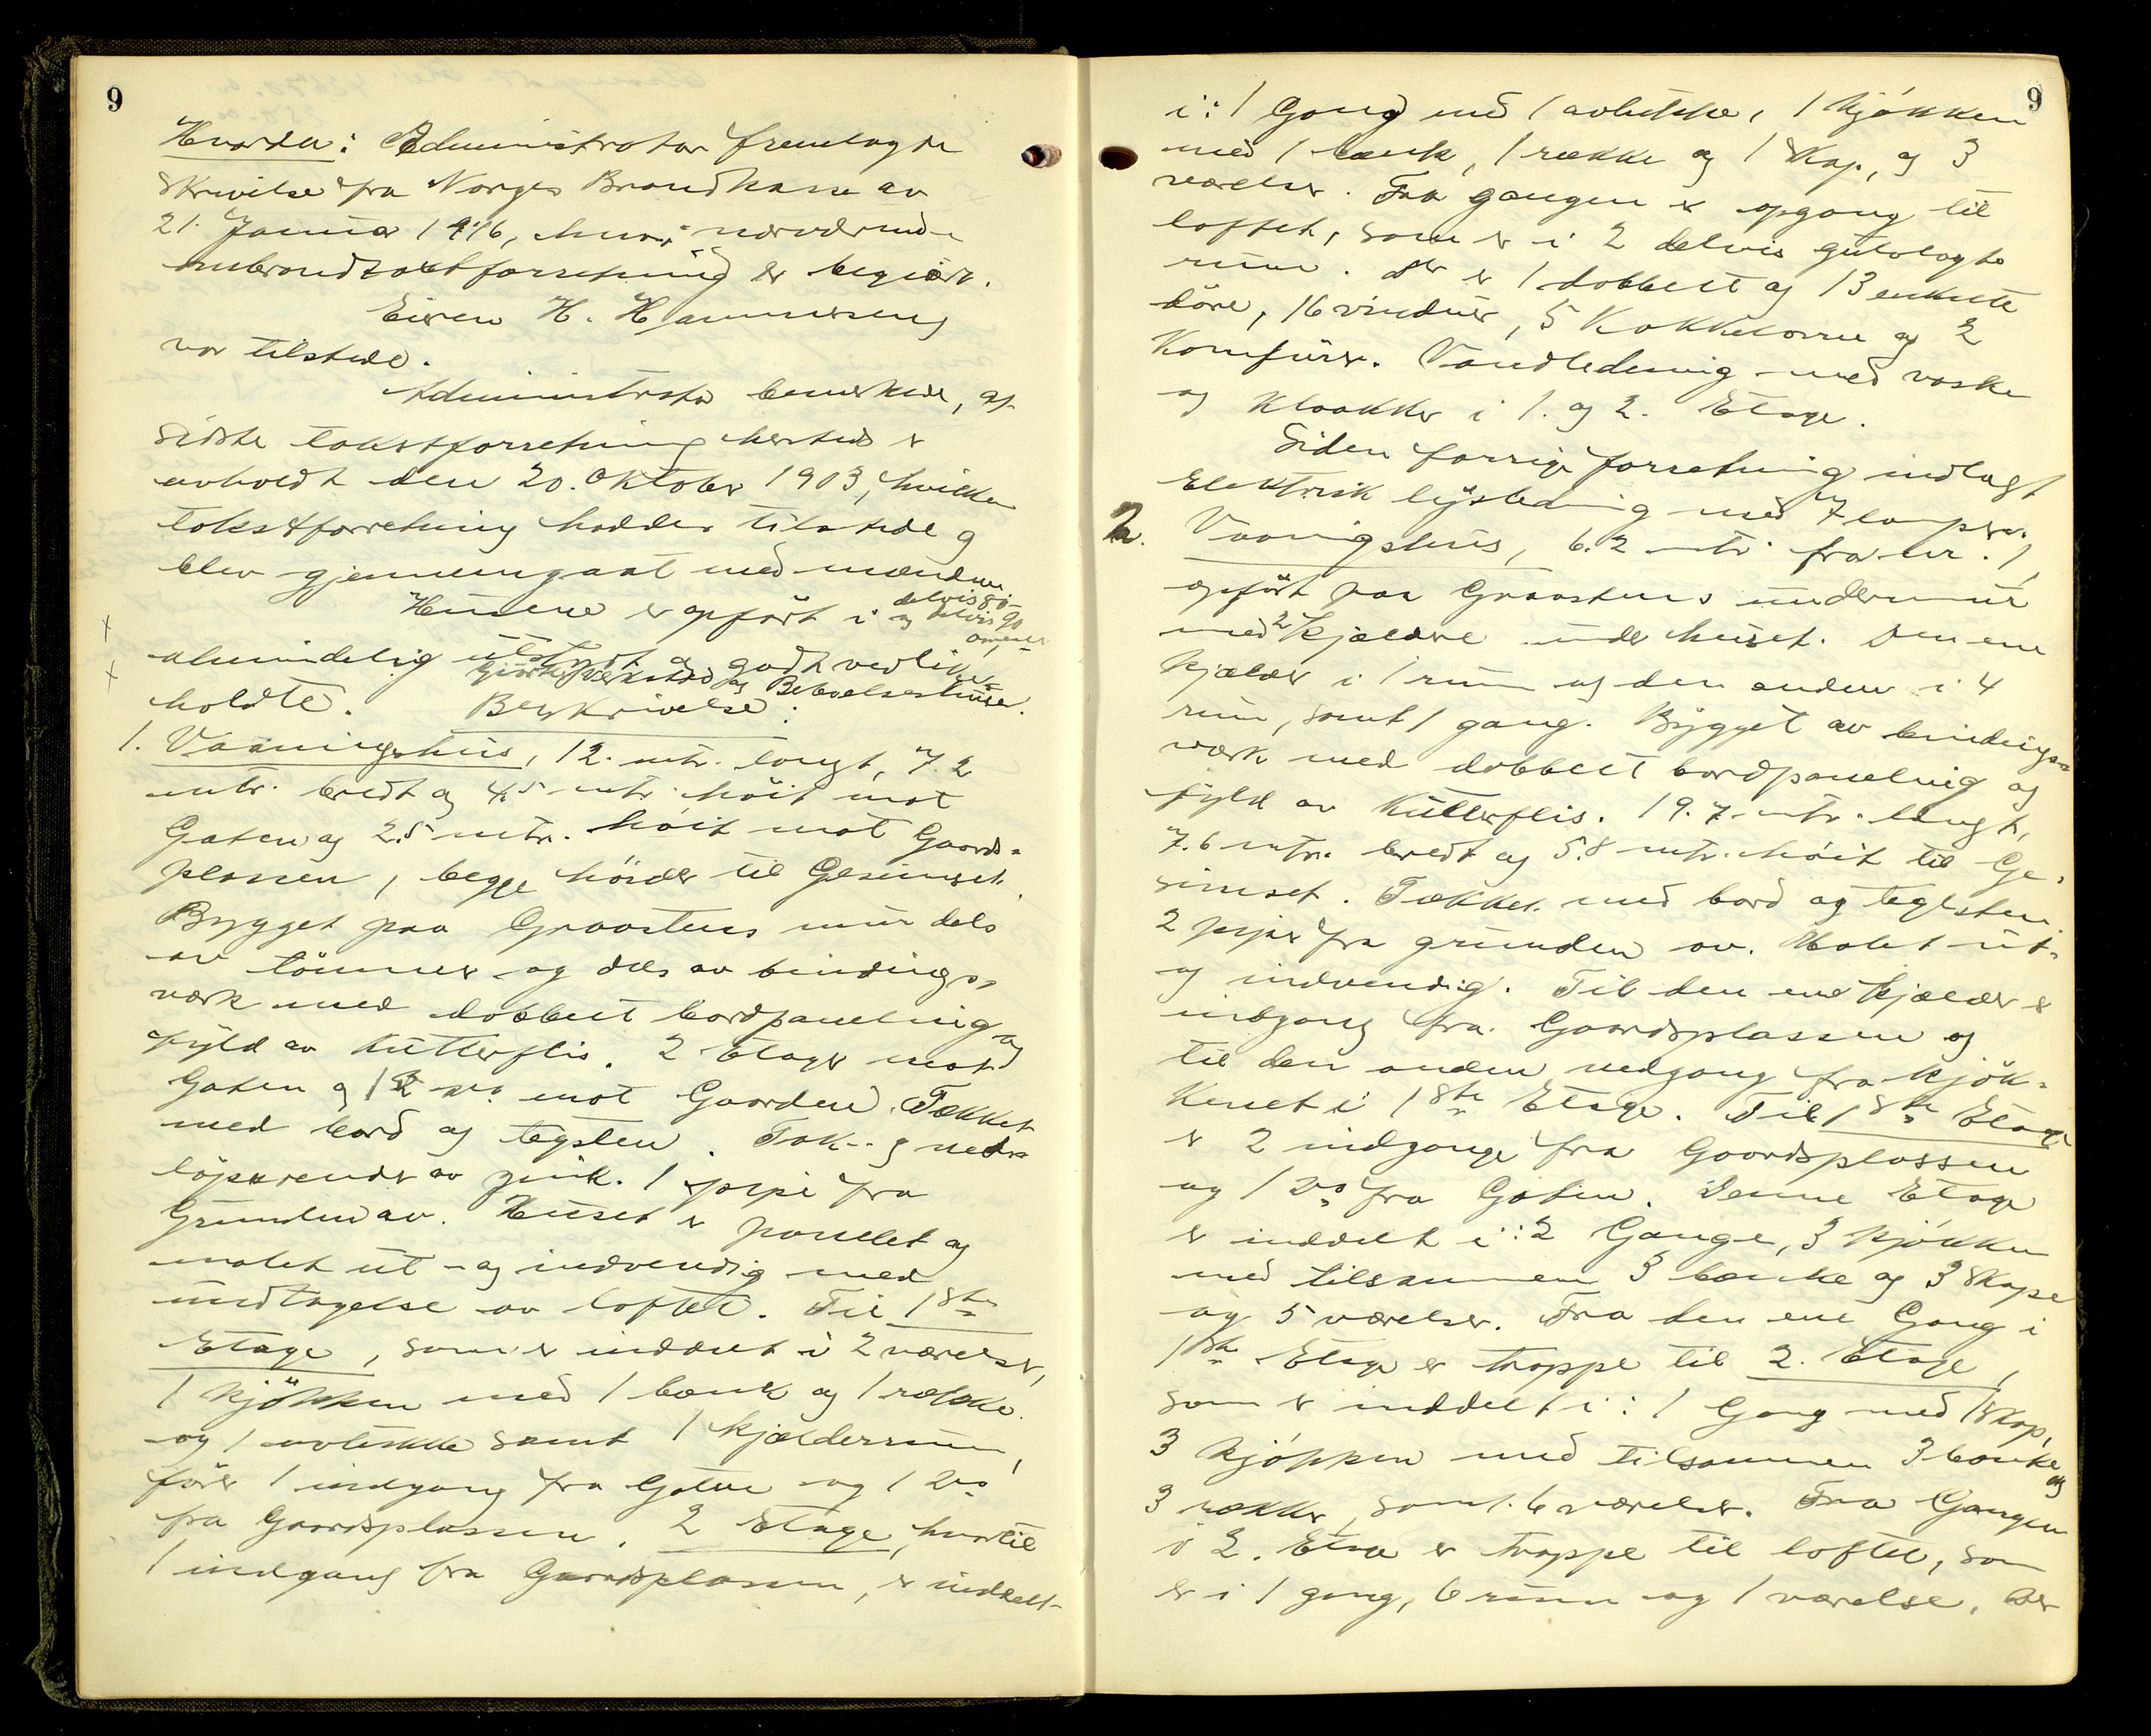 9
Hvorda: Administrator fremlagde
skrivelse fra Norges Brandkasse av
21. Januar 1916, hvori nærværende
ombrandtakstforretning er begjært.
Eieren H. Hammerseng
var tilstede.
Administrator bemerkede, at
sidste takstforretning hersteds er
avholdt den 20. Oktober 1903, hvilken
takstforretning haddes tilstede og
blev gjennemgaat med mændene
Husene er opført i delvis 80-
og delvis 90
aarene,
almindelig utstyrt og godt vedlike-
Gjørtlerverksted og Beboelseshuse.
holdte. Beskrivelse:
1. Vaaningshus, 12. mtr. langt, 7.2
mtr. bredt og 4.5 mtr. høit mot
Gaten og 2.5 mtr. høit mot Gaards-
plassen, begge høider til Gesimset.
Bygget paa Graastens mur dels
av tømmer og dels av bindings-
værk med dobbelt bordpaneling og
fyld av Kutterflis. 2 Etager mot
Gaten og 1 do mot Gaarden. Tækket
med bord og tegsten. Tak- og ned-
løpsrender av zink. 1 pipe fra
Grunden av. Huset er panelet og
malet ut- og indvendig med
undtagelse av loftet. Til 1ste
Etage, som er inddelt i 2 værelser,
1 kjøkken med 1 bænk og 1 række
og 1 avlukke samt 1 kjælderrum,
fører 1 indgang fra Gaten og 1 do
fra Gaardsplassen. 2 Etage, hvortil
1 indgang fra Gaardsplassen, er inddelt
9
i: 1 Gang med 1 avlukke, 1 kjøkken
med 1 bænk, 1 række og 1 Skap, og 3
værelser. Fra gangen er opgang til
loftet, som er i 2 delvis gulvlagte
rum. Der er 1 dobbelt og 13 enkelte
døre, 16 vinduer, 5 Kakkelovne og 2
Komfurer. Vandledning med vaske
og Kloakker i 1. og 2. Etage.
Siden forrige forretning indlagt
Elektrisk lysledning med 7 lamper.
2. Vaaningshus, 6.2 mtr. fra nr. 1,
opført paa Graastens undermur
med 2 kjeldere under huset. Den ene
kjelder i 1 rum og den anden i 4
rum, samt 1 gang. Bygget av bindings-
værk med dobbelt bordpaneling og
fyld av Kutterflis. 19.7 mtr. langt,
7.6 mtr. bredt og 5.8 mtr. høit til Ge-
simset. Tækket med bord og teglsten
2 piper fra grunden av. Malet ut-
og indvendig. Til den ene kjælder er
indgang fra Gaardsplassen og
til den anden nedgang fra kjøk-
kenet i 1ste Etage. Til 1ste Etage
er 2 indgange fra Gaardsplassen
og 1 do fra Gaten. Denne Etage
er inddelt i: 2 Gange, 3 kjøkken
med tilsammen 3 bænke og 3 Skape
og 5 værelser. Fra den ene Gang i
1ste Etage er trappe til 2. Etage,
som er inddelt i: 1 Gang med 1 Skap,
3 kjøkken med tilsammen 3 bænke og
3 rækker, samt 6 værelser. Fra Gangen
i 2. Etage er trappe til loftet, som
er i 1 gang, 6 rum og 1 værelse. Der